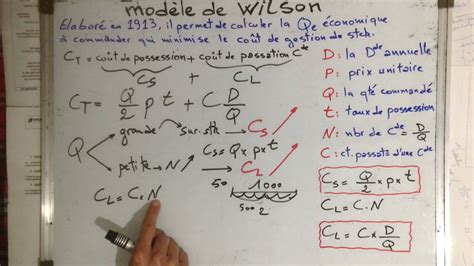 modèle de Wilson
Elaboré en 1913, il permet de calculer la Qe économique
à commander qui minimise le coût de gestion de stck.
CT = coût de possession + coût de passation Cde
CS + CL
CT = Q/2 p t + C D/Q
Q
grande → sur. stk → CS
petite → N → CL
CS = Q × p × t
CL = C × N
50
1000
500
2
D : la Dde annuelle
P : prix unitaire
Q : la qté commandé
t : taux de possession
N : nbr de Cde = D/Q
C : ct. passat° d'une Cde
CS = Q/2 × p × t
CL = C · N
CL = C × D/Q